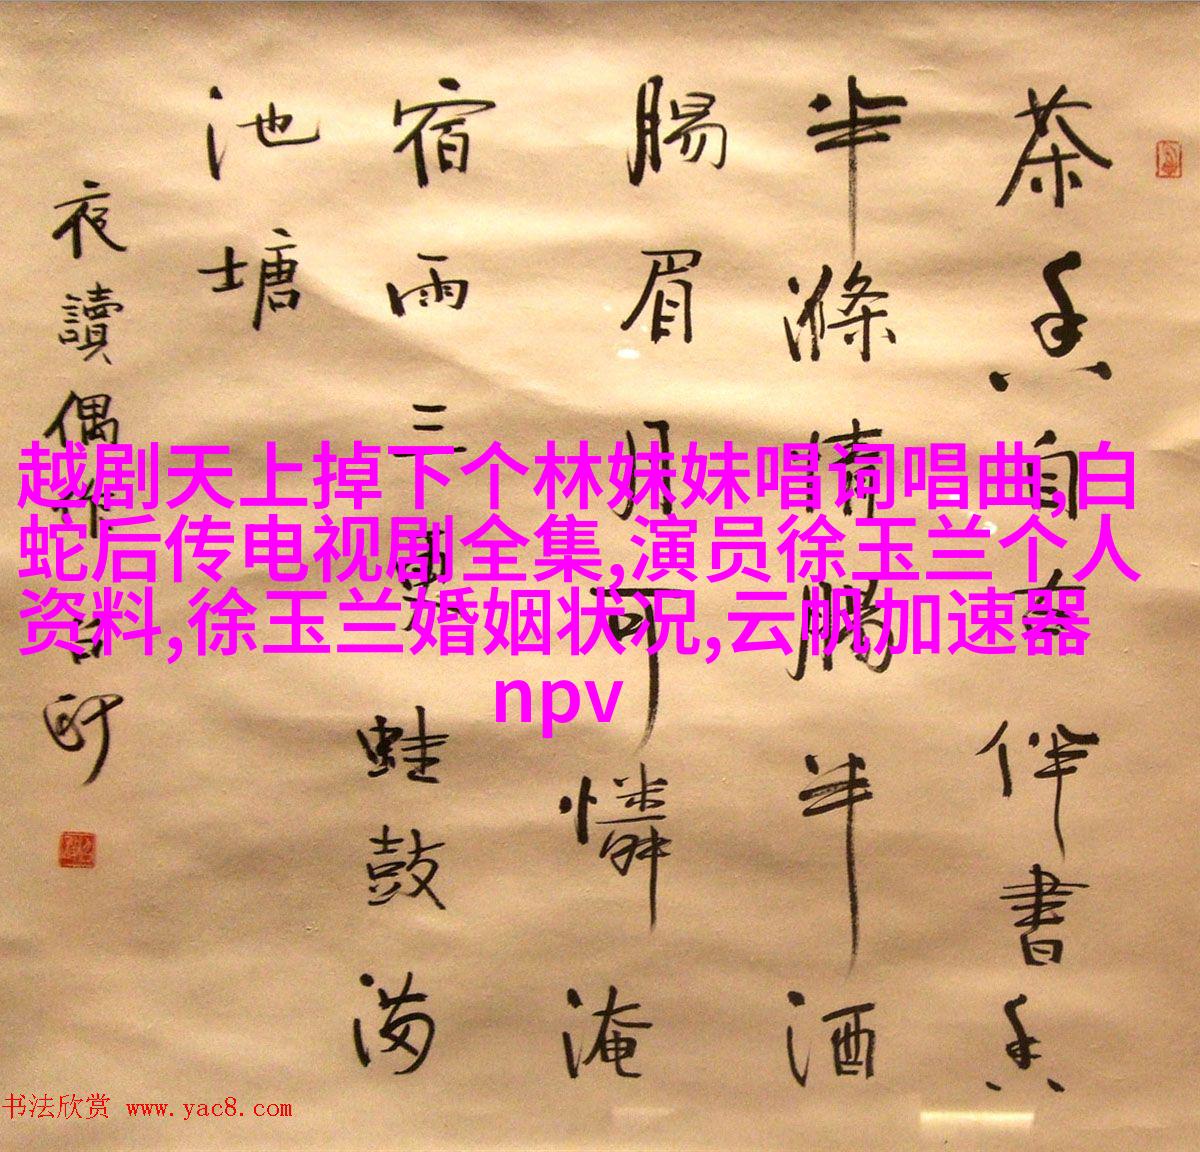 茶香自伴書香
半滌情腸半酒
腸眉月可憐淹
宿雨三更蛙鼓满
池塘
夜讀偶
越剧天上掉下个林妹妹唱词唱曲,白
蛇后传电视剧全集,演员徐玉兰个人
资料,徐玉兰婚姻状况,云帆加速器
npv
书法欣赏 www.yac8.com